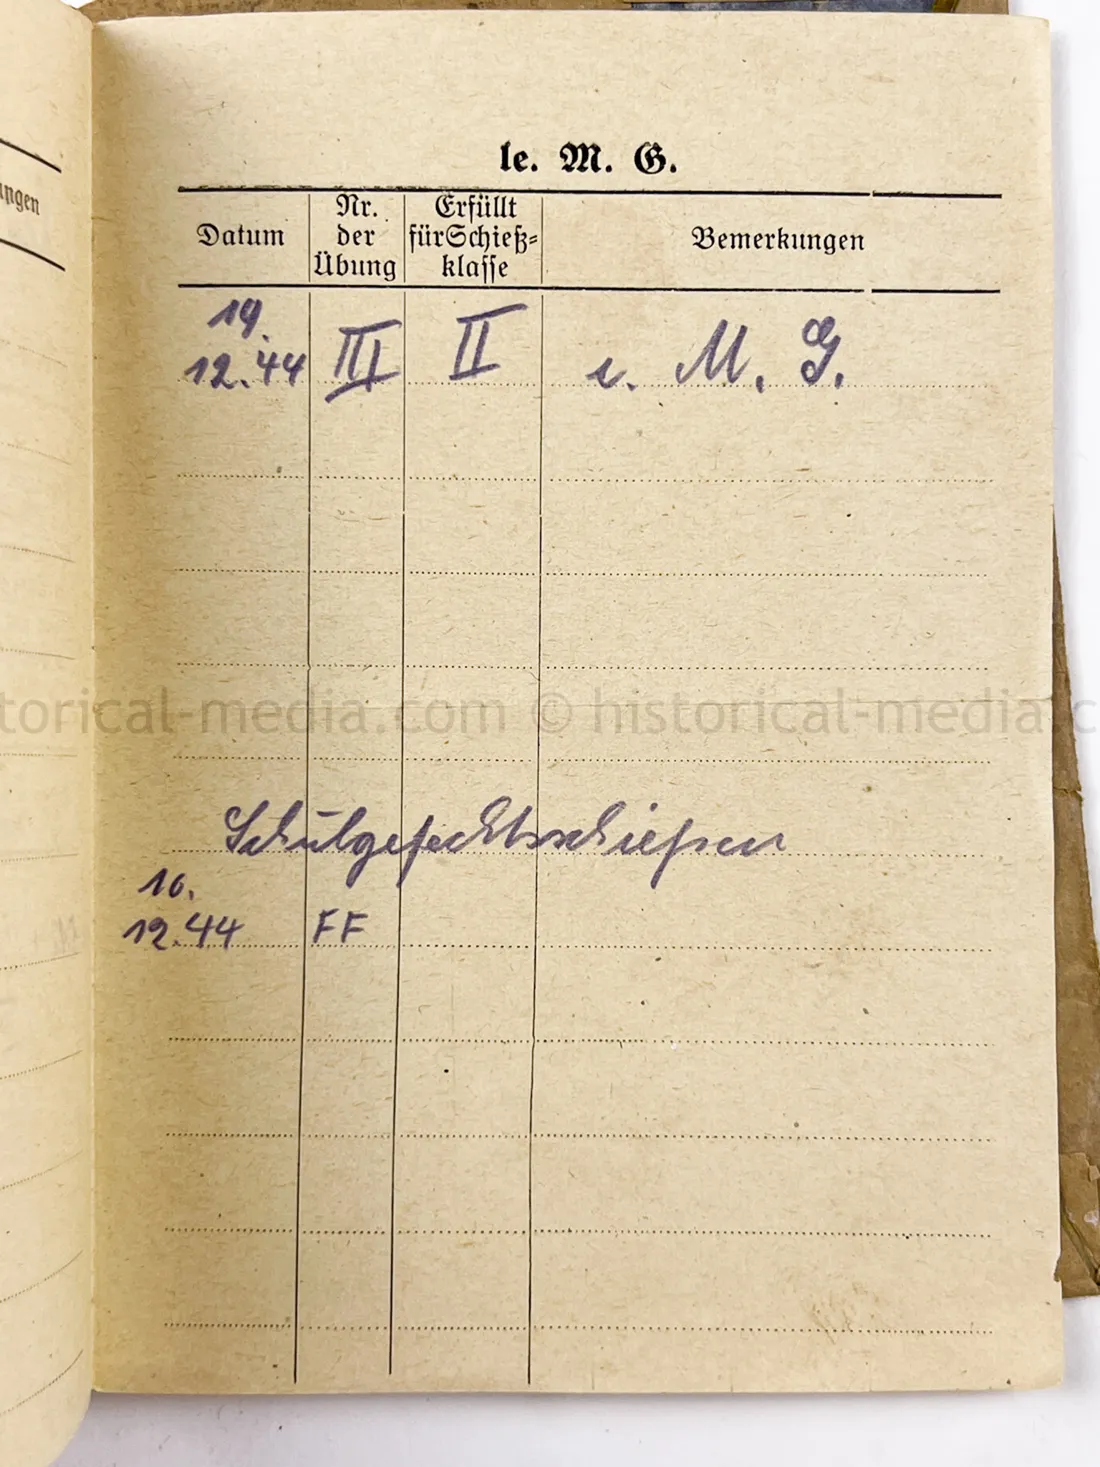 ungen
le. M. G.
Datum
Nr.
der
Übung
Erfüllt
für Schieß-
klasse
Bemerkungen
19.
12.44 III II M. G.
torical-media.com © historical-media.c
Schulgefechtsschießen
10.
12.44 FF